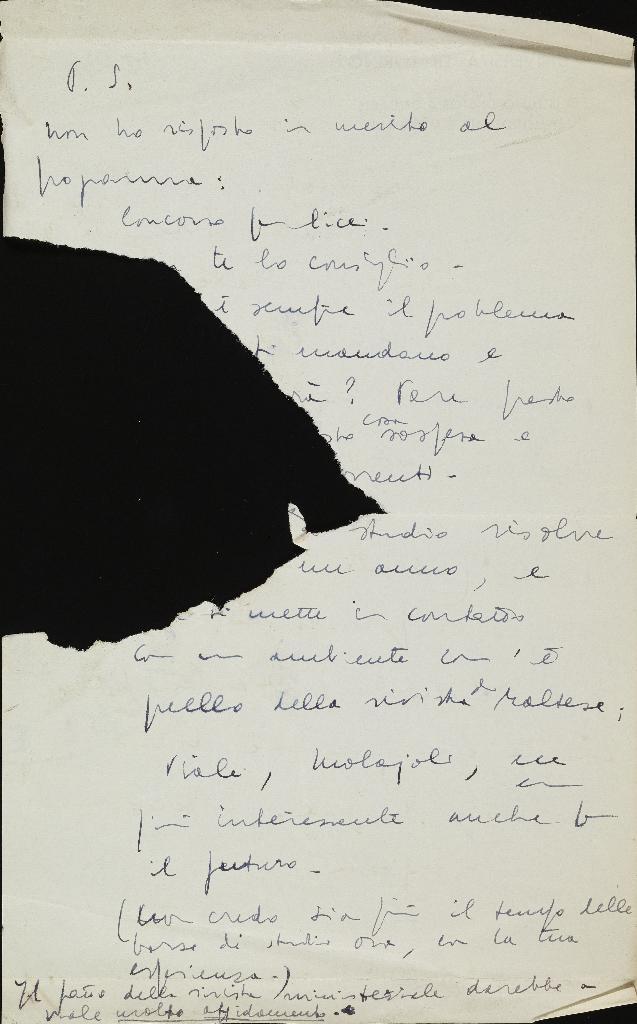 P. S.
non ho risposto in merito al
programma:
Concorso per licei.
te lo consiglio -
è sempre il problema
ti mandano e
rà? Vera presto
sto cosa sospesa e
menti -
studio risolve
un anno, e
ti mette in contatto
con un ambiente com'è
quello della rivista di Maltese;
Viale, Molajoli, 
più interessante anche per
il futuro -
(Non credo sia più il tempo delle
borse di studio ora, con la tua
esperienza.)
Il fatto della rivista ministeriale darebbe a
Viale molto affidamento.